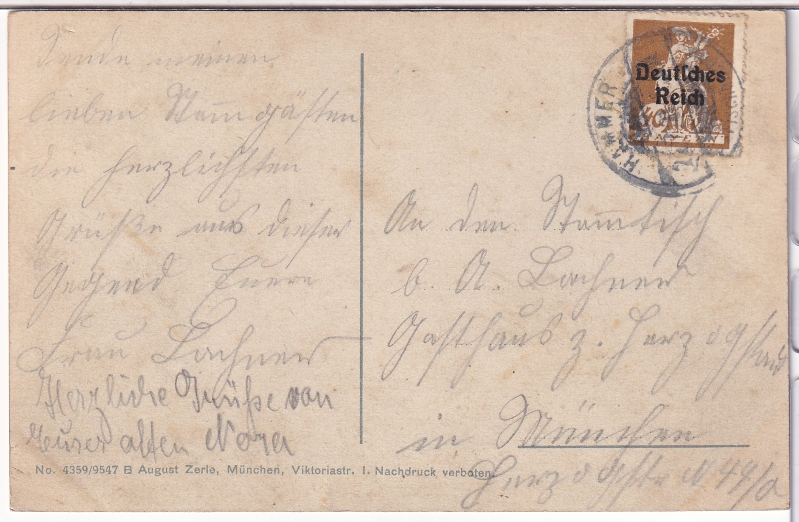 Sende meinen
lieben Stammgästen
die herzlichsten
Grüße aus dieser
Gegend Euere
Frau Lachner
Herzliche Grüße von
Eurer alten Nora
No. 4359/9547 B August Zerle, München, Viktoriastr. 1. Nachdruck verboten.
Deutsches
Reich
HAMMER
An den Stammtisch
b. A. Lachner
Gasthaus z. Herzogstand
in München
Herzogstr N 44/0